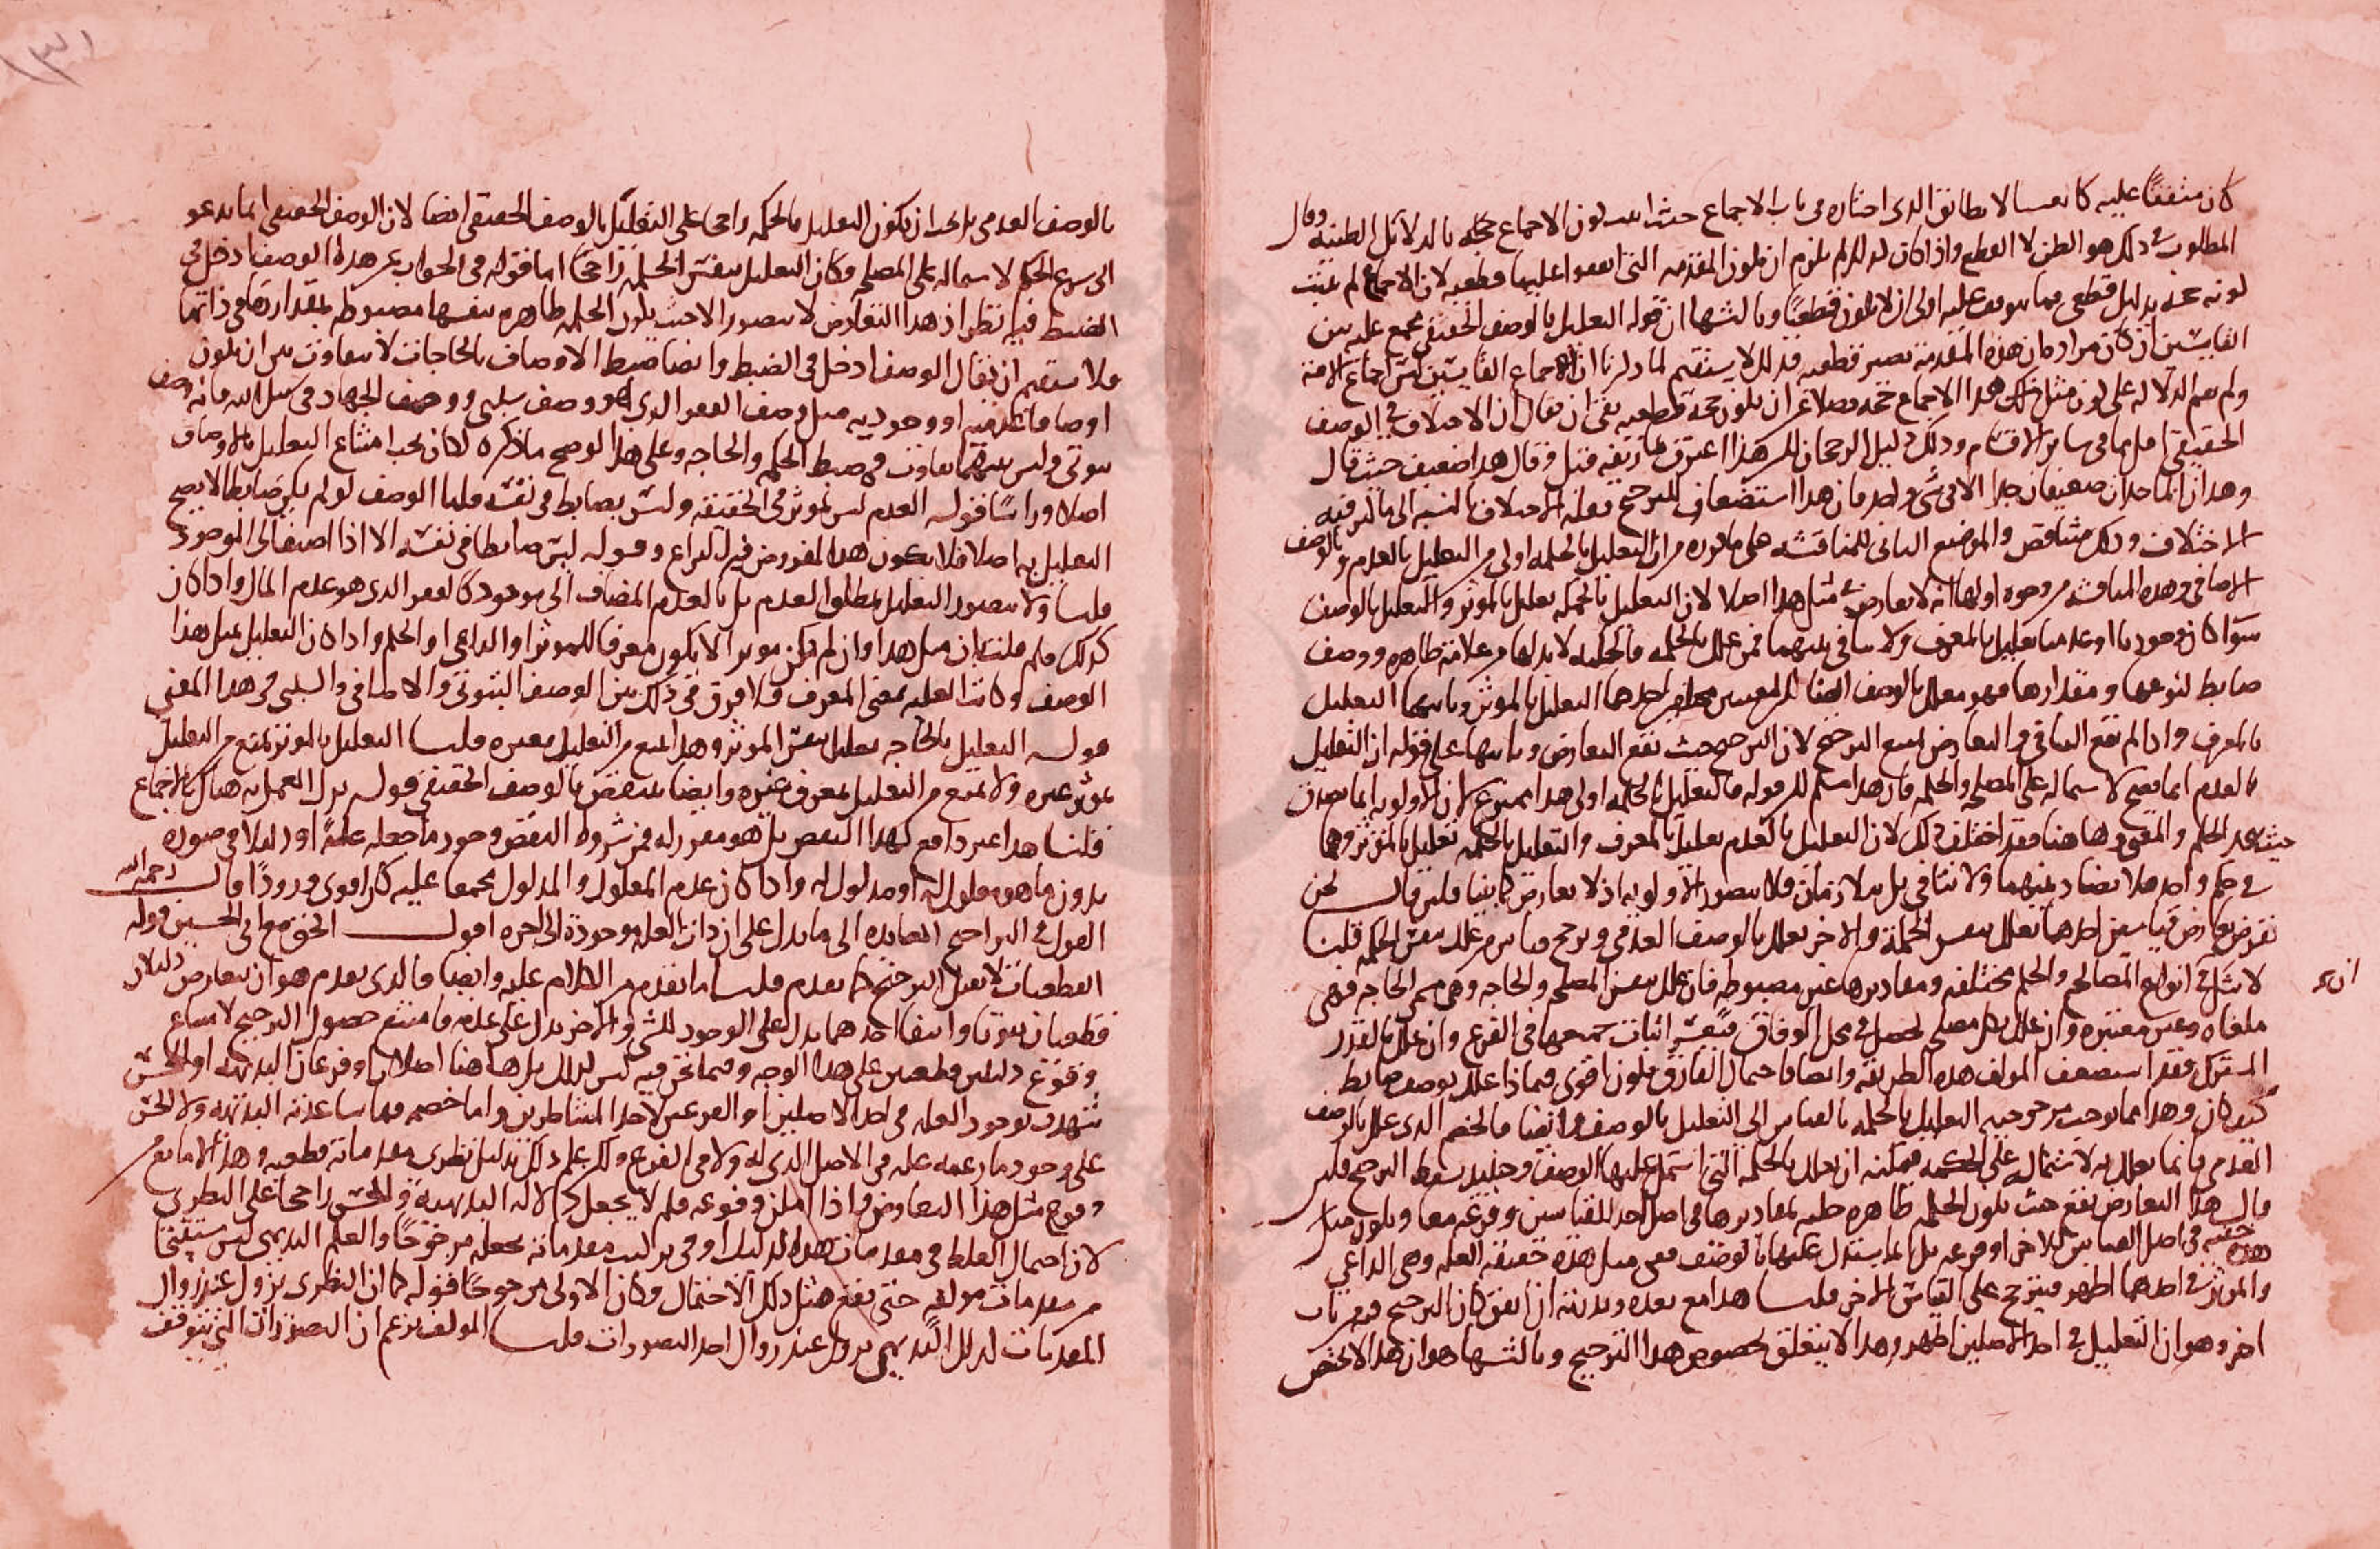 كان متفقا عليه كما نفسا لا يطابق الذي اختاره في باب الاجماع حيث اثبت كون الاجماع حجة بالدلائل الظنية وقال
المطلوب في ذلك هو الظن لا القطع واذا كان كذلك لم يلزم ان تكون المقدمة التي اتفقوا عليها قطعية لان الاجماع لم يثبت
كونه حجة بدليل قطعي فما يتوقف عليه اولى ان لا يكون قطعيا وثالثها ان قوله التعليل بالوصف الحقيقي مجمع عليه بين
القايسين ان كان مراده ان هذه المقدمة تصير قطعية فذلك لا يستقيم لما ذكرنا ان اجماع القايسين ليس اجماع الامة
ولم تقم الدلالة على كون مثل هذا الاجماع حجة فضلا عن ان يكون حجة قطعية بقي ان يقال ان الاختلاف في الوصف
الحقيقي اقل مما في سائر الاقسام وذلك دليل الرجحان لكن هذا اعترف بما زيفه قبل وقال هذا ضعيف حيث قال
وهذان الماخذان ضعيفان جدا الا في شي واحد فان هذا استضعاف للترجيح بقلة الاختلاف بالنسبة الى ما كثر فيه
الاختلاف وذلك متناقض والموضع الثاني للمناقشة على ما قوره من ان التعليل بالحكمة اولى من التعليل بالعدم وبالوصف
الاضافي وهذه المناقشة من وجوه اولها انه لا تعارض في مثل هذا اصلا لان التعليل بالحكمة تعليل بالموثر والتعليل بالوصف
سوا كان وجوديا او عدميا تعليل بالمعرف ولا تنافي بينهما فمن علل بالحكمة فالحكمة لا بد لها من علامة ظاهرة ووصف
ضابط لنوعها ومقدارها فهو معلل بالوصف ايضا احدهما التعليل بالموثر وثانيهما التعليل
بالمعرف واذا لم تقع التنافي والتعارض امتنع الترجيح لان الترجيح حيث تقع التعارض وثانيها على قوله ان التعليل
بالعدم انما يصح لاشتماله على المصلحة والحكمة فان هذا مسلم لكن قوله فالتعليل بالحكمة اولى هذا ممنوع لان الاولوية انما تصدق
حيث يتحد الحكم والمقوم وهاهنا فقد اختلف ذلك لان التعليل بالعدم تعليل بالمعرف والتعليل بالحكمة تعليل بالموثر وهما
في حكم واحد فلا تضاد بينهما ولا تنافي بل متلازمان فلا تتصور الاولوية اذ لا تعارض كما بينا فلين قال نحن
نفرض تعارض قياسين احدهما تعلل بنفس الحكمة والاخر تعلل بالوصف العدمي ونرجح قياس من علل بنفس الحكمة قلنا
لا شك في انواع المصالح والحكم مختلفة ومقاديرها غير مضبوطة فان علل بنفس المصلحة والحاجة وهي مسمى الحاجة فهي
ملغاة وغير معتبرة وان علل بكل مصلحة تحصل في محل الوفاق فيعسر اثبات جميعها في الفرع وان علل بالقدر
المشترك فقد استضعف المولف هذه الطريقة وايضا فاحتمال الفارق يكون اقوى فيما اذا علل بوصف ضابط
كيف كان وهذا مما يوجب مرجوحية التعليل بالحكمة بالقياس الى التعليل بالوصف وايضا فالخصم الذي علل بالوصف
العدمي فانما تعلل به لاشتماله على الحكمة فيمكنه ان تعلل بالحكمة التي اشتمل عليها الوصف وحينئذ يسقط الترجيح فلين
قال هذا التعارض تقع حيث تكون الحكمة ظاهرة جلية بمقاديرها في اصل احد القياسين وفرعه معا وتكون هذه
خفية في اصل القياس الاخر او فرعه بل انما يستدل عليها بالوصف ففي مثل هذه حقيقة العلة وهي الداعي
والموثر في احدهما اظهر فيترجح على القياس الاخر قلنا هذا مع بعده وندرته ان اتفق كان الترجيح فيه من باب
اخر وهو ان التعليل في احد الاصلين اظهر وهذا لا يتعلق بخصوص هذا الترجيح وثالثها هو ان هذا لا يختص
بالوصف العدمي بل يجب ان يكون التعليل بالحكمة راجحا على التعليل بالوصف الحقيقي ايضا لان الوصف الحقيقي انما يدعو
الى شرع الحكم لاشتماله على المصلحة فكان التعليل بنفس الحكمة راجحا اما قوله في الجواب عن هذا الوصف ادخل في
الضبط فيه نظر اذ هذا التعارض لا يتصور الا حيث تكون الحكمة ظاهرة بنفسها مضبوطة بمقدارتها في ذاتها
فلا يستقيم ان يقال الوصف ادخل في الضبط وايضا ضبط الاوصاف بالحاجات لا يتفاوت بين ان يكون
اوصافا عدمية او وجودية مثل وصف الفقر الذي هو وصف سلبي ووصف الجهاد في سبيل الله فانه وصف
ثبوتي وليس بينهما تفاوت في ضبط الحكمة والحاجة وعلى هذا لو صح ما ذكره لكان يجب امتناع التعليل بالاوصاف
اصلا وراسا فقوله العدم ليس بموثر في الحقيقة وليس بضابط في نفسه قلنا الوصف لو لم يكن ضابطا لا يصح
التعليل به اصلا فلا يكون هذا المفروض قبل النزاع وقوله ليس ضابطا في نفسه الا اذا اضيف الى الموجود
قلنا ولا يتصور التعليل بمطلق العدم بل بالعدم المضاف الى موجود كالفقر الذي هو عدم المال واذا كان
كذلك فلم قلت ان مثل هذا وان لم يكن موثرا لا يكون معرفا للموثر او الداعي او الحكم واذا كان التعليل بمثل هذا
الوصف وكانت العلة بمعنى المعرف فلا فرق في ذلك بين الوصف الثبوتي والاضافي والسلبي في هذا المعنى
قوله التعليل بالحاجة تعليل بنفس الموثر وهذا يمنع من التعليل بغيره قلنا التعليل بالموثر يمنع من التعليل
بموثر غيره ولا يمنع من التعليل بمعرف غيره وايضا ينتقض بالوصف الحقيقي قوله ترك العمل به هناك بالاجماع
قلنا هذا غير دافع لهذا النقض بل هو مقرر له فمن شروط النقض وجود ما جعله علة او دليلا في صورة
بدون ما هو معلول له او مدلول له واذا كان عدم المعلول والمدلول مجمعا عليه كان اقوى ورودا قال رحمه الله
القول في التراجيح العايدة الى ما يدل على ان ذات العلة موجودة الى اخره اقول الحق مع ابي الحسين قوله
القطعيات لا تقبل الترجيح كما تقدم قلنا ما تقدم من الكلام عليه وايضا فالذي تقدم هو ان تعارض دليلان
قطعيان ثبوتا وانتفا احدهما يدل على الوجود للشي والاخر يدل على عدمه فامتنع حصول الترجيح لامتناع
وقوع دليلين قطعيين على هذا الوجه وفيما نحن فيه ليس كذلك بل هاهنا اصلان وفرعان البديهة او الحس
تشهد بوجود العلة في احد الاصلين او الفرعين لاحد المتناظرين واما خصمه فما ساعدته البديهة ولا الحس
على وجود ما زعمه علة في الاصل الذي له ولا في الفرع ولكن علم ذلك بدليل نظري مقدماته قطعية وهذا لا مانع من
وقوع مثل هذا التعارض واذا امكن وقوعه فلم لا يجعل دلالة البديهة والحس راجحا على النظري
لان احتمال الغلط في مقدمات هذا الدليل او في تركيب مقدماته تجعله مرجوحا والعلم البديهي ليس مستنتجا
من مقدمات مولفة حتى تقع مثل ذلك الاحتمال فكان الاولى مرجوحا فقوله كما ان النظري يزول عند زوال
المقدمات كذلك البديهي يزول عند زوال احد التصورات قلنا المولف يزعم ان التصورات التي يتوقف